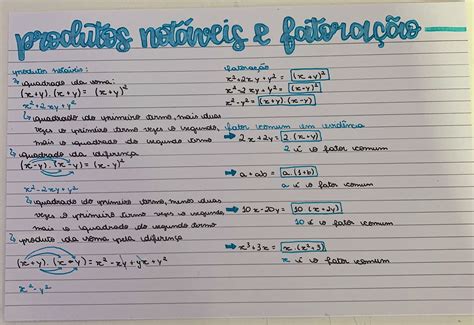 produtos notáveis e fatoração
produtos notáveis:
↳ quadrado da soma:
(x+y).(x+y)=(x+y)²
x²+2xy+y²
↳ quadrado do primeiro termo, mais duas
vezes o primeiro termo vezes o segundo,
mais o quadrado do segundo termo
↳ quadrado da diferença
(x-y).(x-y)=(x-y)²
x²-2xy+y²
↳ quadrado do primeiro termo, menos duas
vezes o primeiro termo vezes o segundo
mais o quadrado do segundo termo
↳ produto da soma pela diferença
(x+y).(x-y)=x²-xy+yx+y²
x²-y²
fatoração
x²+2xy+y²=(x+y)²
x²-2xy+y²=(x-y)²
x²-y²=(x+y).(x-y)
fator comum em evidência
➡ 2x+2y=2.(x+y)
2 é o fator comum
➡ a+ab=a.(1+b)
a é o fator comum
➡ 10x-20y=10(x+2y)
10 é o fator comum
➡ x³+3x=x.(x²+3)
x é o fator comum